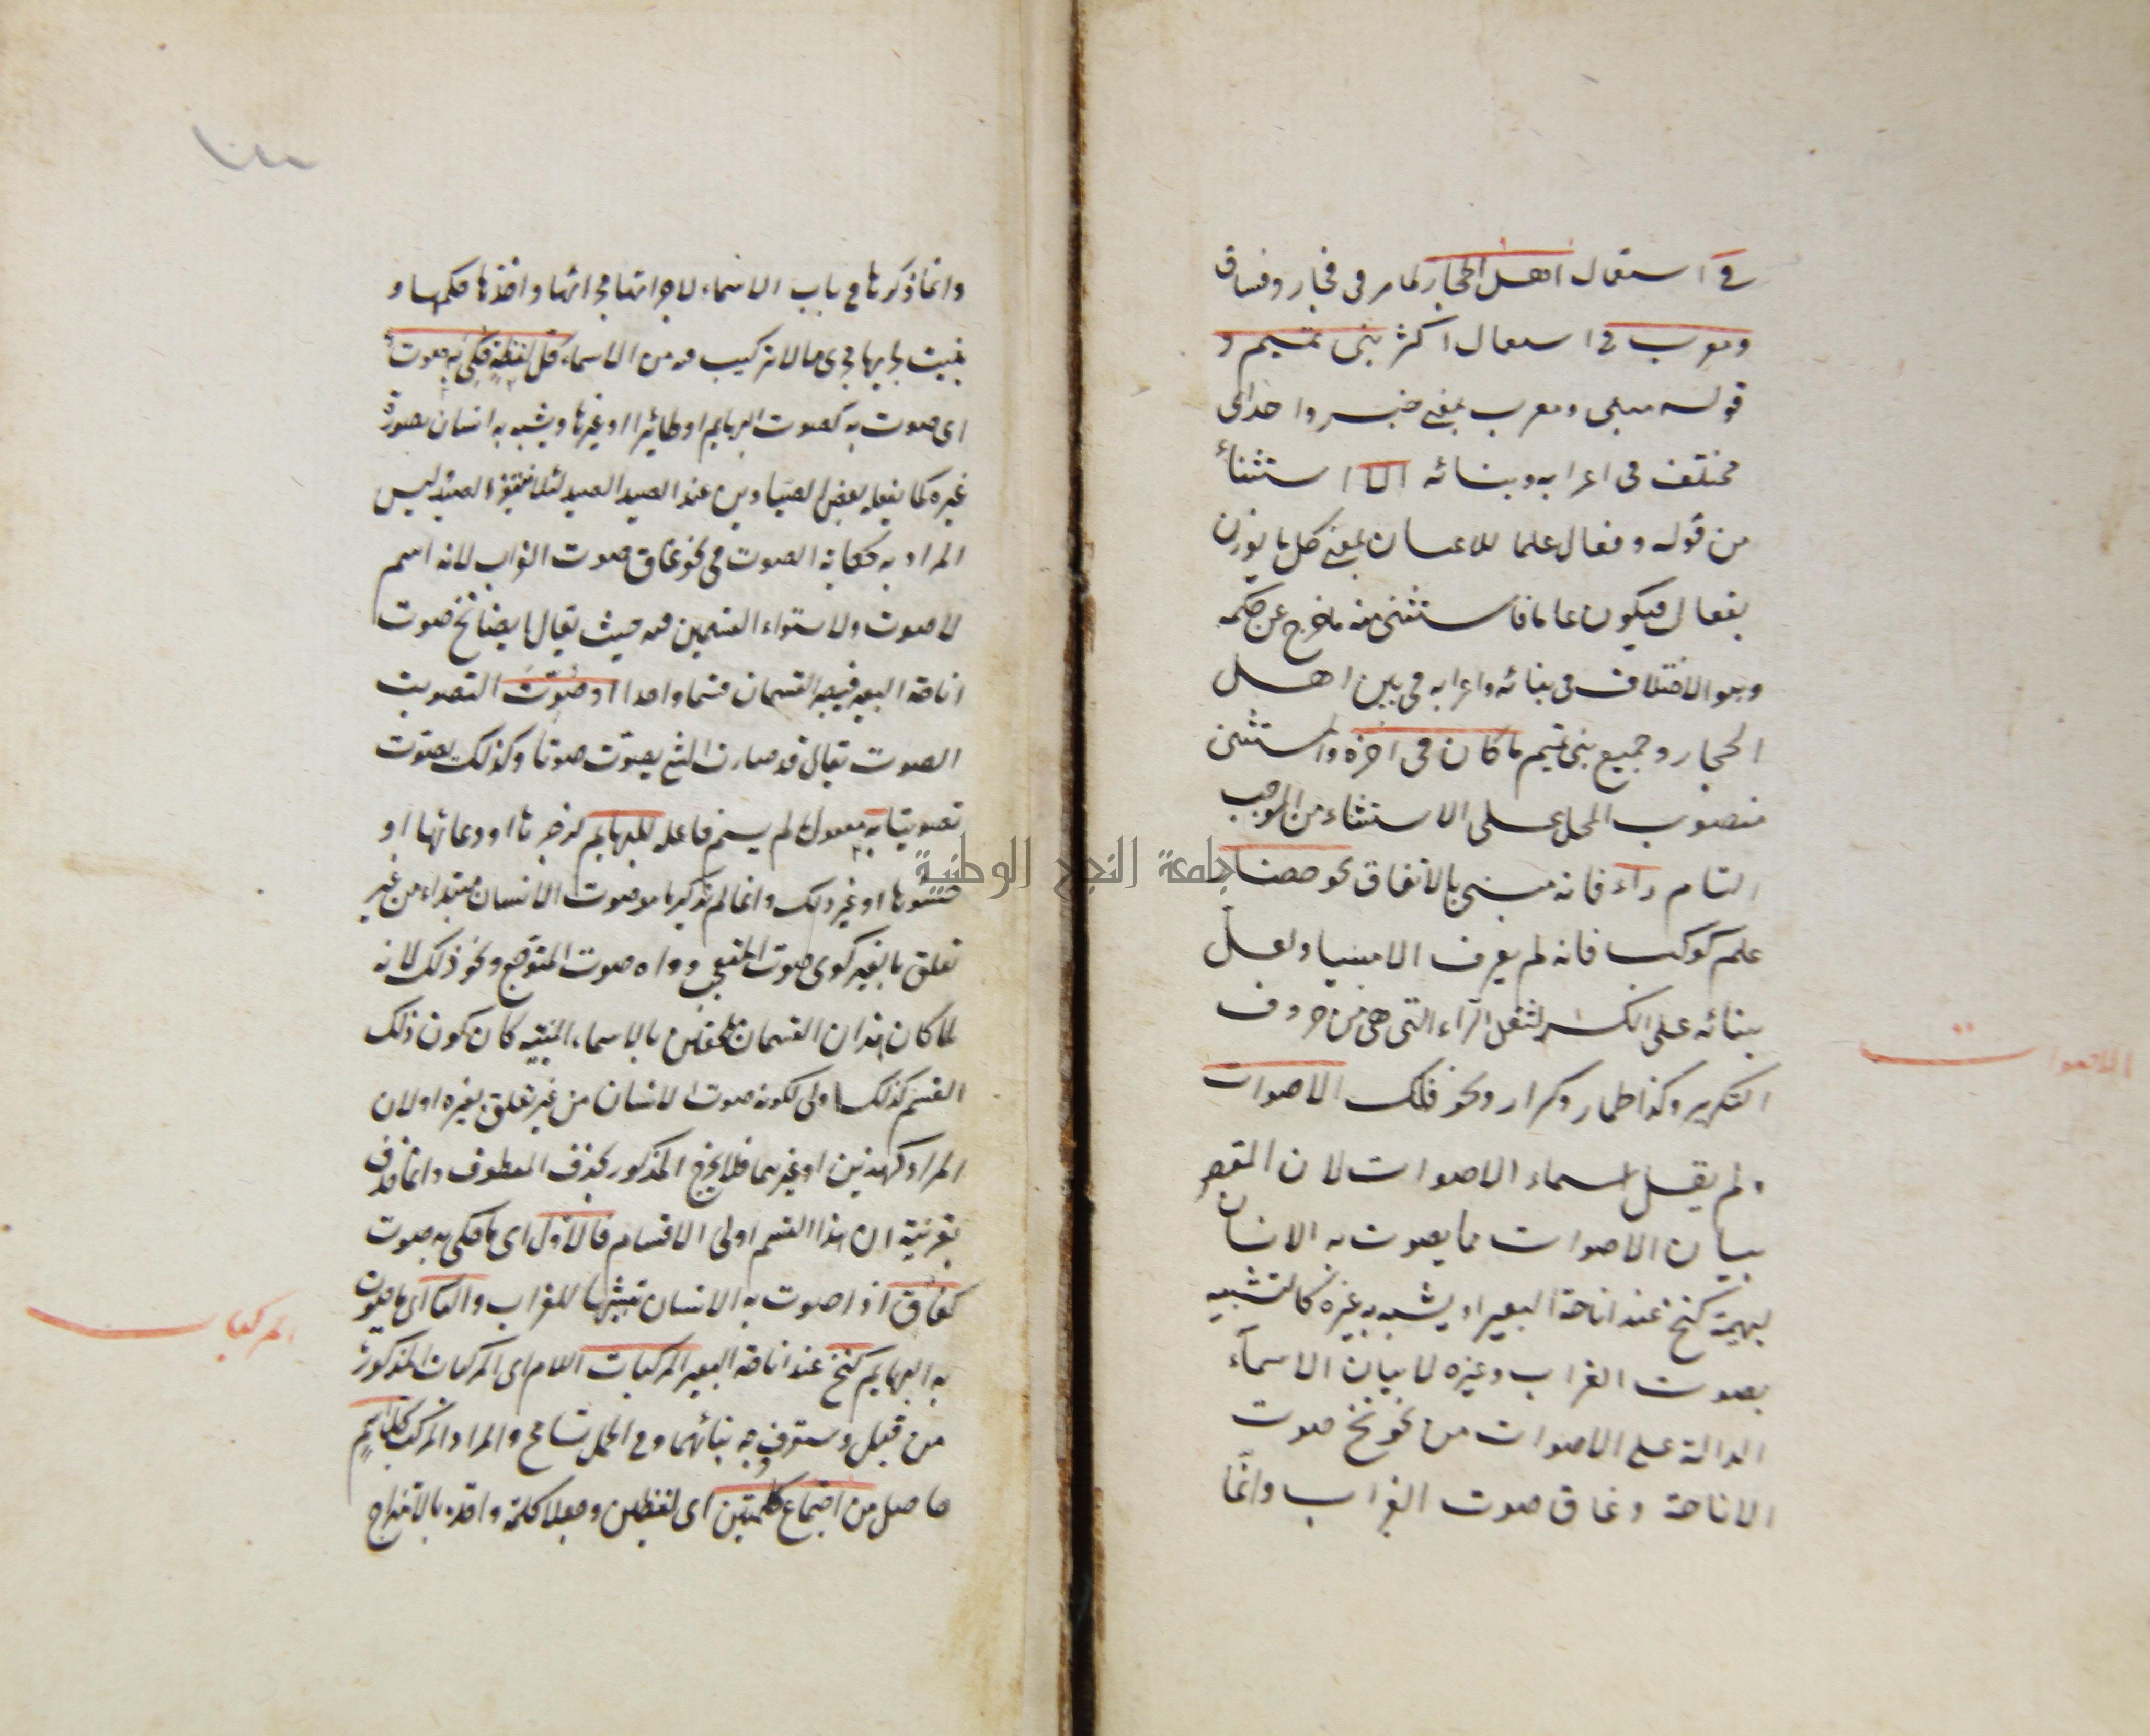 في استعمال اهل الحجاز لما مر في فجار وفساق
ومعرب في استعمال اكثر بني تميم و
قوله مبني ومعرب بمعنى خبر واحد اي
مختلف في اعرابه وبنائه الا استثناء
من قوله وفعال علما للاعيان بمعنى كل ما يوزن
بفعال فيكون عاما فاستثنى منه ما خرج عن حكمه
وهو الاختلاف في بنائه واعرابه في بين اهل
الحجاز وجميع بني تميم ما كان في آخره والمستثنى
منصوب المحل على الاستثناء من الموجب
التام راء فانه مبني بالاتفاق نحو حضار
علم كوكب فانه لم يعرف الا مبنيا ولعل
بنائه على الكسر لثقل الراء التي هي من حروف
التكرير وكذا طمار وكرار ونحو ذلك الاصوات
الاصوات
ولم يقل اسماء الاصوات لان المقص
بيان الاصوات مما يصوت به الانسان
لبهيمة كنخ عند اناخة البعير او يشبه به غيره كالتشبيه
بصوت الغراب وغيره لا بيان الاسماء
الدالة على الاصوات من نحو نخ صوت
الاناخة وغاق صوت الغراب وانما
وانما ذكرها في باب الاسماء لاجرائها مجرائها واخذها حكمها و
بنيت لجريها مجرى ما لا تركيب فيه من الاسماء كل لفظة حكي به صوت
اي صوت به كصوت البهايم او طائرا او غيرها ويشبه به انسان بصوت
غيره كما يفعله بعض الصيادين عند الصيد لئلا الصيد ليس
المراد به حكاية الصوت في نحو غاق صوت الغراب لانه اسم
لا صوت ولاستواء القسمين فيه حيث يقال ايضا نخ صوت
اناخة البعير فيصير القسمان قسما واحدا او صُوِّت التصويت
الصوت يقال قد صات الشئ يصوت صوتا وكذلك يصوت
تصويتا به مفعول ما لم يسم فاعله للبهايم لزجرها او دعائها او
او غير ذلك وانما لم يذكر ما هو صوت الانسان مبتداء من غير
تعلق بالغير كوي صوت المتعجب وواه صوت المتوجع ونحو ذلك لانه
لما كان هذان القسمان بالاسماء المبنية كان كون ذلك
القسم كذلك اولى لكونه صوت الانسان من غير تعلق بغيره او لان
المراد كهذين او غيرهما فلا يخرج المذكور بحذف المعطوف وانما حذف
بقرينة ان هذا القسم اولى الاقسام فالاول اي ما حكي به صوت
كغاق اذا صوت به الانسان تشبيها للغراب والثاني اي ما صوت
به البهايم كنخ عند اناخة البعير المركبات اللام اي المركبات المذكورة
المركبات
من قبل وستعرف وجه بنائهما وفي الحمل تسامح والمراد المركب كل اسم
حاصل من اجتماع كلمتين اي لفظين وجعلا كلمة واحدة بالامتزاج
جامعة النجاح الوطنية